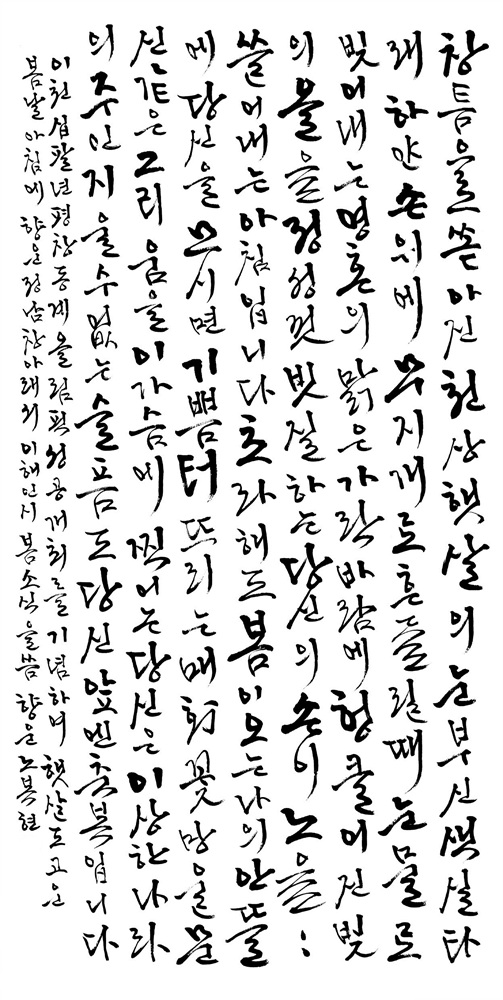 창틈을 쏟아진 천상 햇살의 눈부신 색실 타
래 하얀 손 위에 무지개로 흔들릴 때 눈물로
빚어내는 영혼의 맑은 가락 바람에 헝클어진 빛
의 올을 정성껏 빗질하는 당신의 손이 노을:
쓸어내는 아침입니다 초라해도 봄이 오는 나의 안뜰
에 당신을 모시면 기쁨 터뜨리는 매화 꽃망울 문
신 같은 그리움을 이 가슴에 찍어논 당신은 이상한 나라
의 주인 지울 수 없는 슬픔도 당신 앞엔 축복입니다
이천십팔년 평창동계올림픽 성공개최를 기념하며 햇살도 고운
봄날 아침에 향운정 남창 아래의 이해인 시 봄소식을 씀 향운 노복현